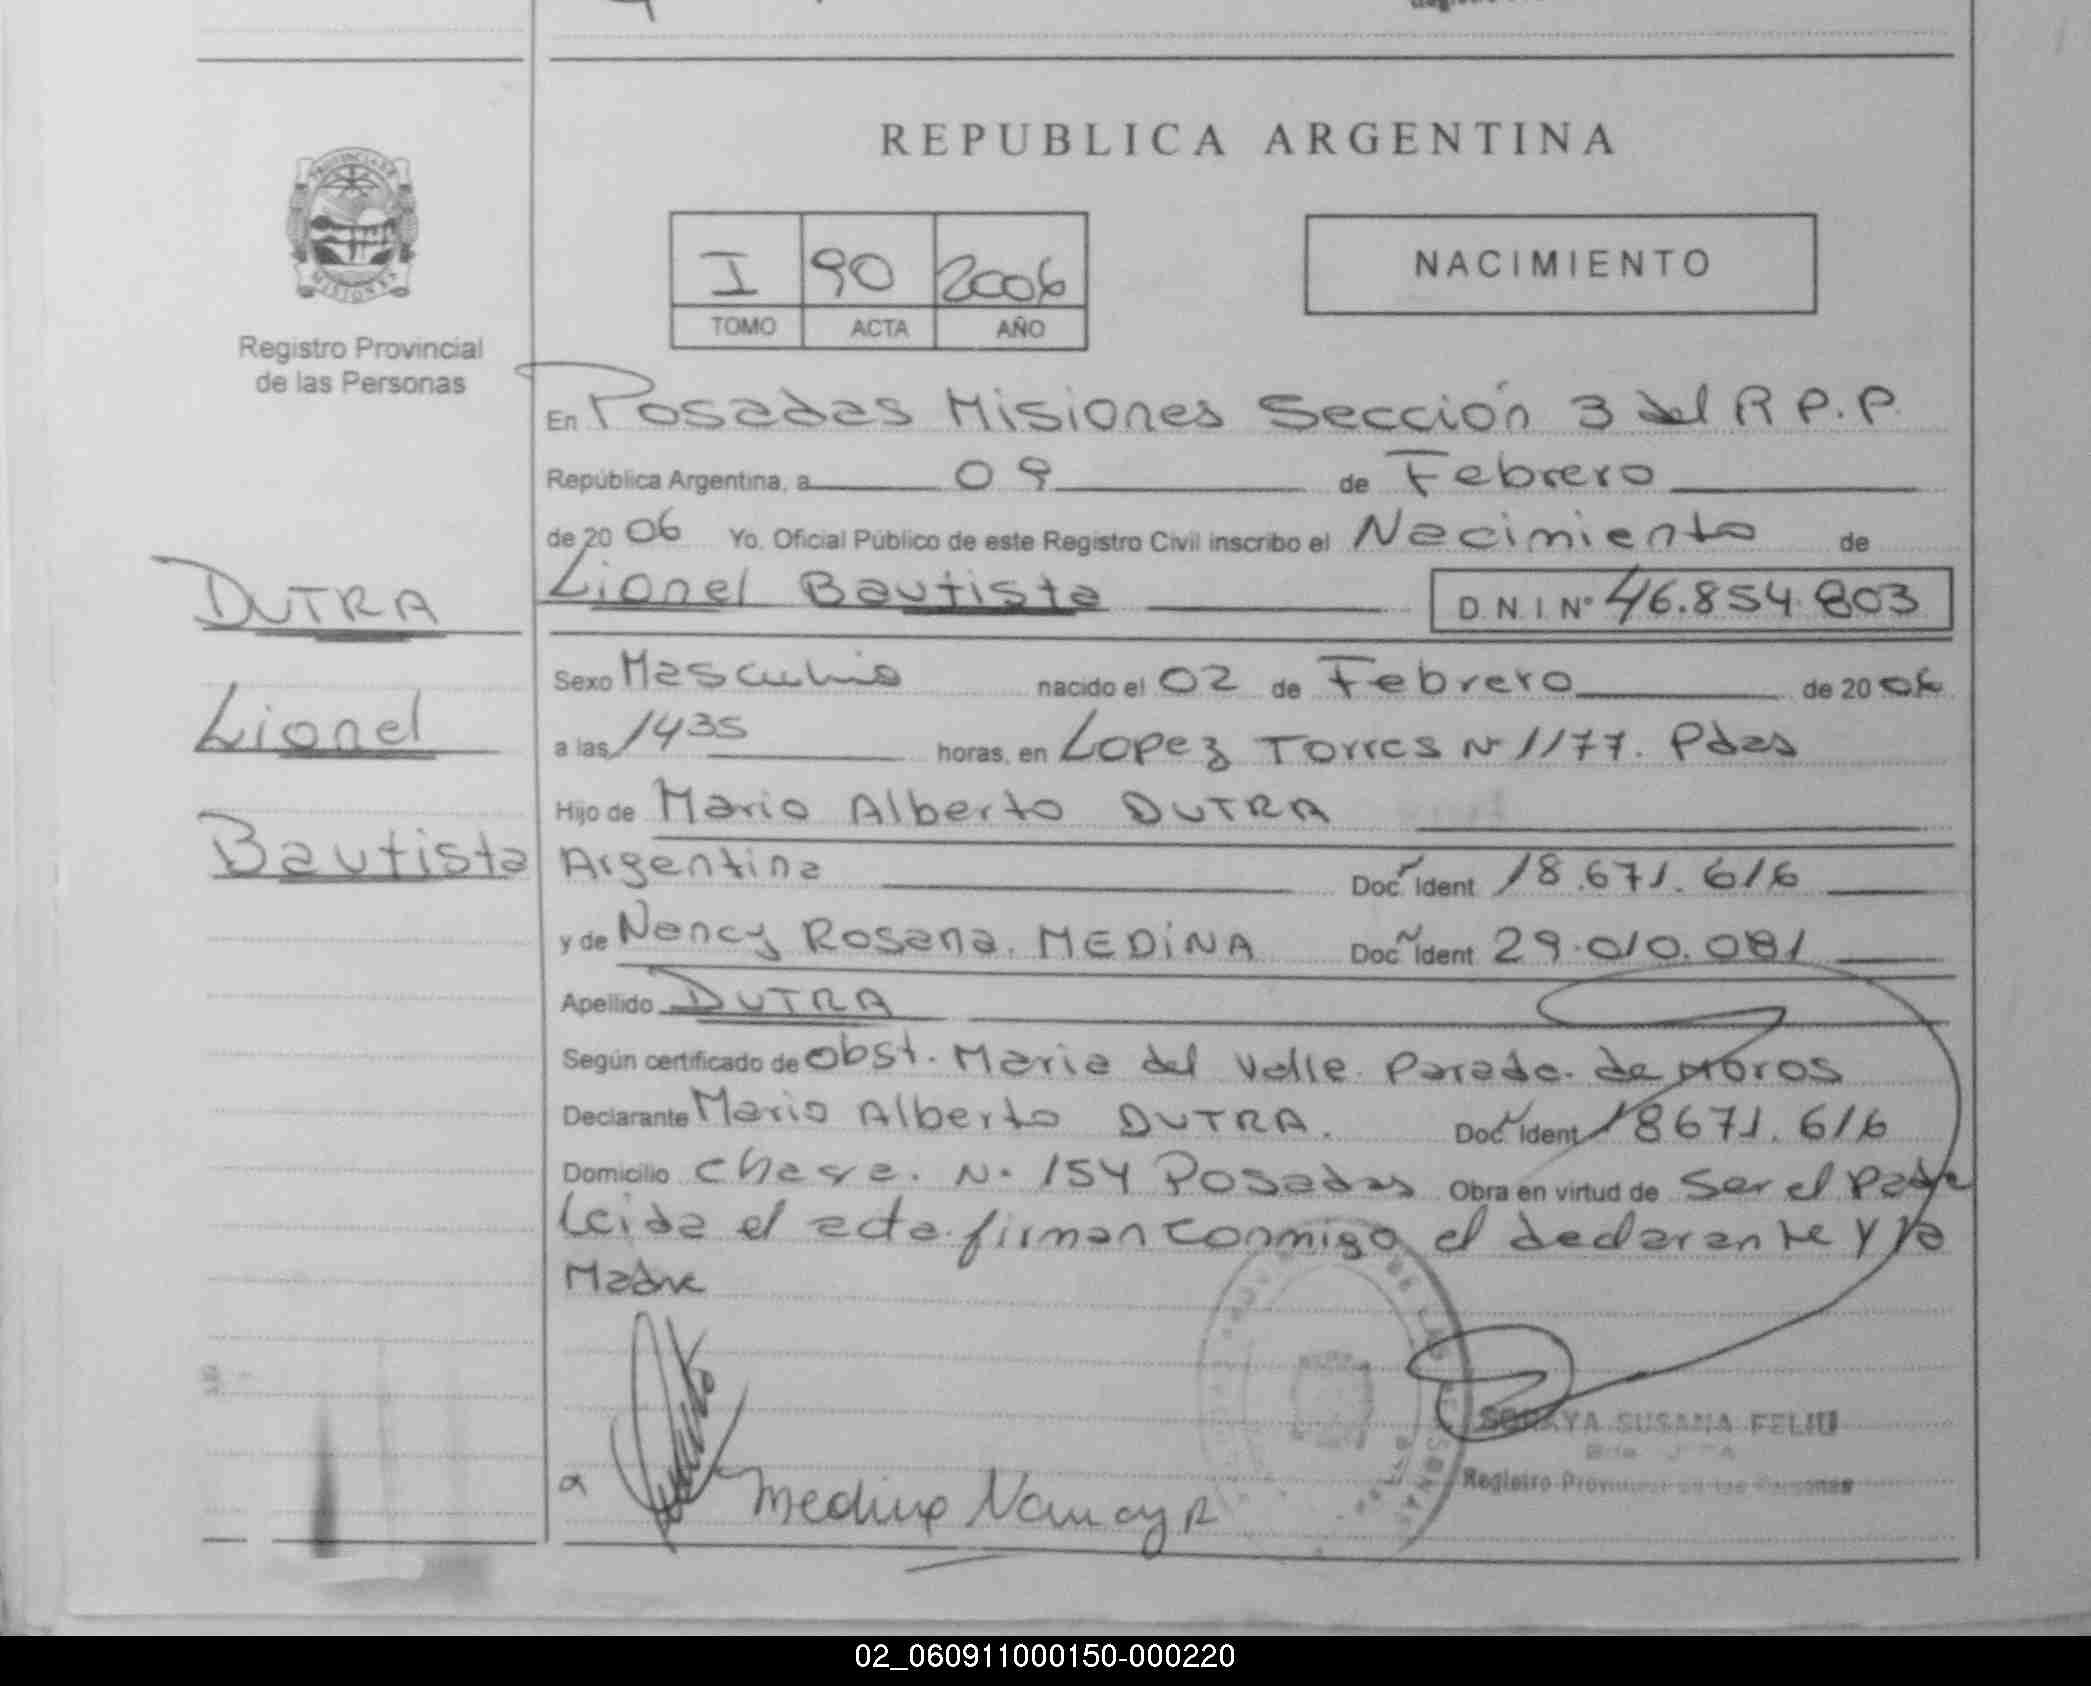 REPUBLICA ARGENTINA
PROVINCIA DE
MISIONES
Registro Provincial
de las Personas
I 90 2006
TOMO ACTA AÑO
NACIMIENTO
En Posadas Misiones Sección 3 del R P.P.
República Argentina, a 09 de Febrero
de 2006 Yo. Oficial Público de este Registro Civil inscribo el Nacimiento de
Lionel Bautista D.N.I. Nº 46.854.803
DUTRA
Lionel
Bautista
Sexo Masculino nacido el 02 de Febrero de 2006
a las 1435 horas, en Lopez Torres Nº 1177. Pdas
Hijo de Mario Alberto DUTRA
Argentina Doc. Ident 18.671.616
y de Nancy Rosana. MEDINA Doc. Ident 29.010.081
Apellido DUTRA
Según certificado de Obst. Maria del Valle Parada de Moros
Declarante Mario Alberto DUTRA. Doc. Ident 18671.616
Domicilio Chacra. Nº 154 Posadas Obra en virtud de Ser el Padre
Leida el acta firman conmigo el declarante y la
Madre
SORAYA SUSANA FELIU
Registro Provincial de las Personas
Medina Nancy R
02_060911000150-000220